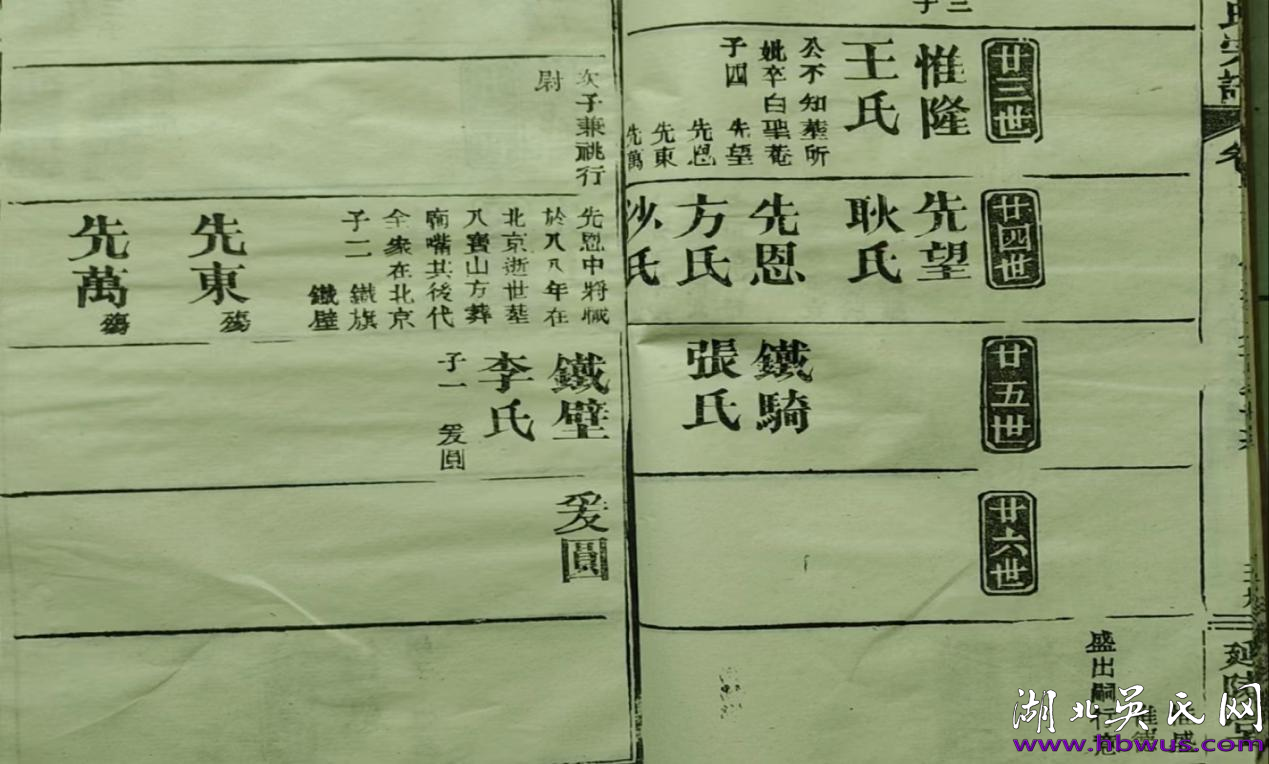 廿三世
惟隆
王氏
公不知葬所
妣卒白聖菴
子四　先望
先恩
先東
先萬
廿四世
先望
耿氏
先恩
方氏
沙氏
廿五世
鐵騎
張氏
廿六世
次子兼祧行
尉
先恩中將職
於八八年在
北京逝世墓
八寶山方葬
廟嘴其後代
全衆在北京
子二　鐵旗
鐵壁
先東　殤
先萬　殤
鐵壁
李氏
子一　爰圓
爰圓
盛出嗣行
延陵
湖北吳氏网
www.hbwus.com